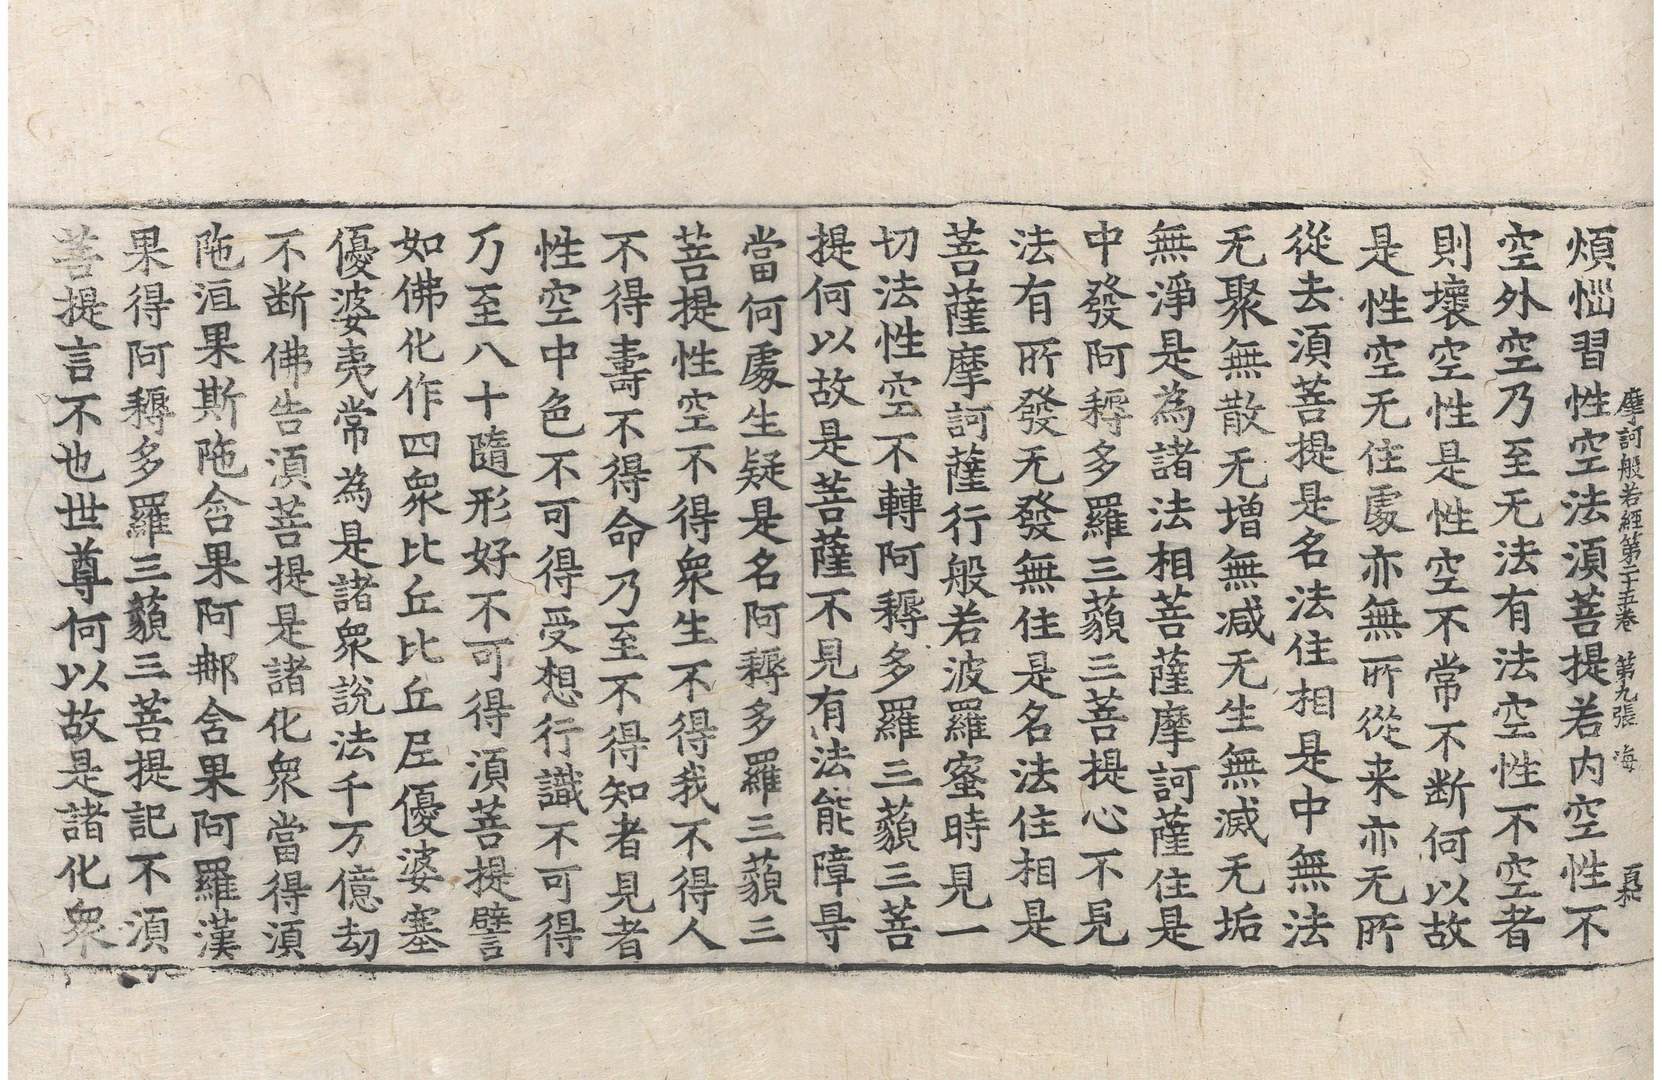 摩訶般若經第二十五卷 第九張 海
煩惱習性空法湏菩提若內空性不
空外空乃至无法有法空性不空者
則壞空性是性空不常不断何以故
是性空无住處亦無所從来亦无所
從去湏菩提是名法住相是中無法
无聚無散无增無减无生無滅无垢
無淨是為諸法相菩薩摩訶薩住是
中發阿耨多羅三藐三菩提心不見
法有所發无發無住是名法住相是
菩薩摩訶薩行般若波羅蜜時見一
切法性空不轉阿耨多羅三藐三菩
提何以故是菩薩不見有法能障㝵
當何處生疑是名阿耨多羅三藐三
菩提性空不得衆生不得我不得人
不得壽不得命乃至不得知者見者
性空中色不可得受想行識不可得
乃至八十隨形好不可得湏菩提譬
如佛化作四衆比丘比丘尼優婆塞
優婆夷常為是諸衆說法千万億劫
不断佛告湏菩提是諸化衆當得湏
陁洹果斯陁含果阿那含果阿羅漢
果得阿耨多羅三藐三菩提記不湏
菩提言不也世尊何以故是諸化衆